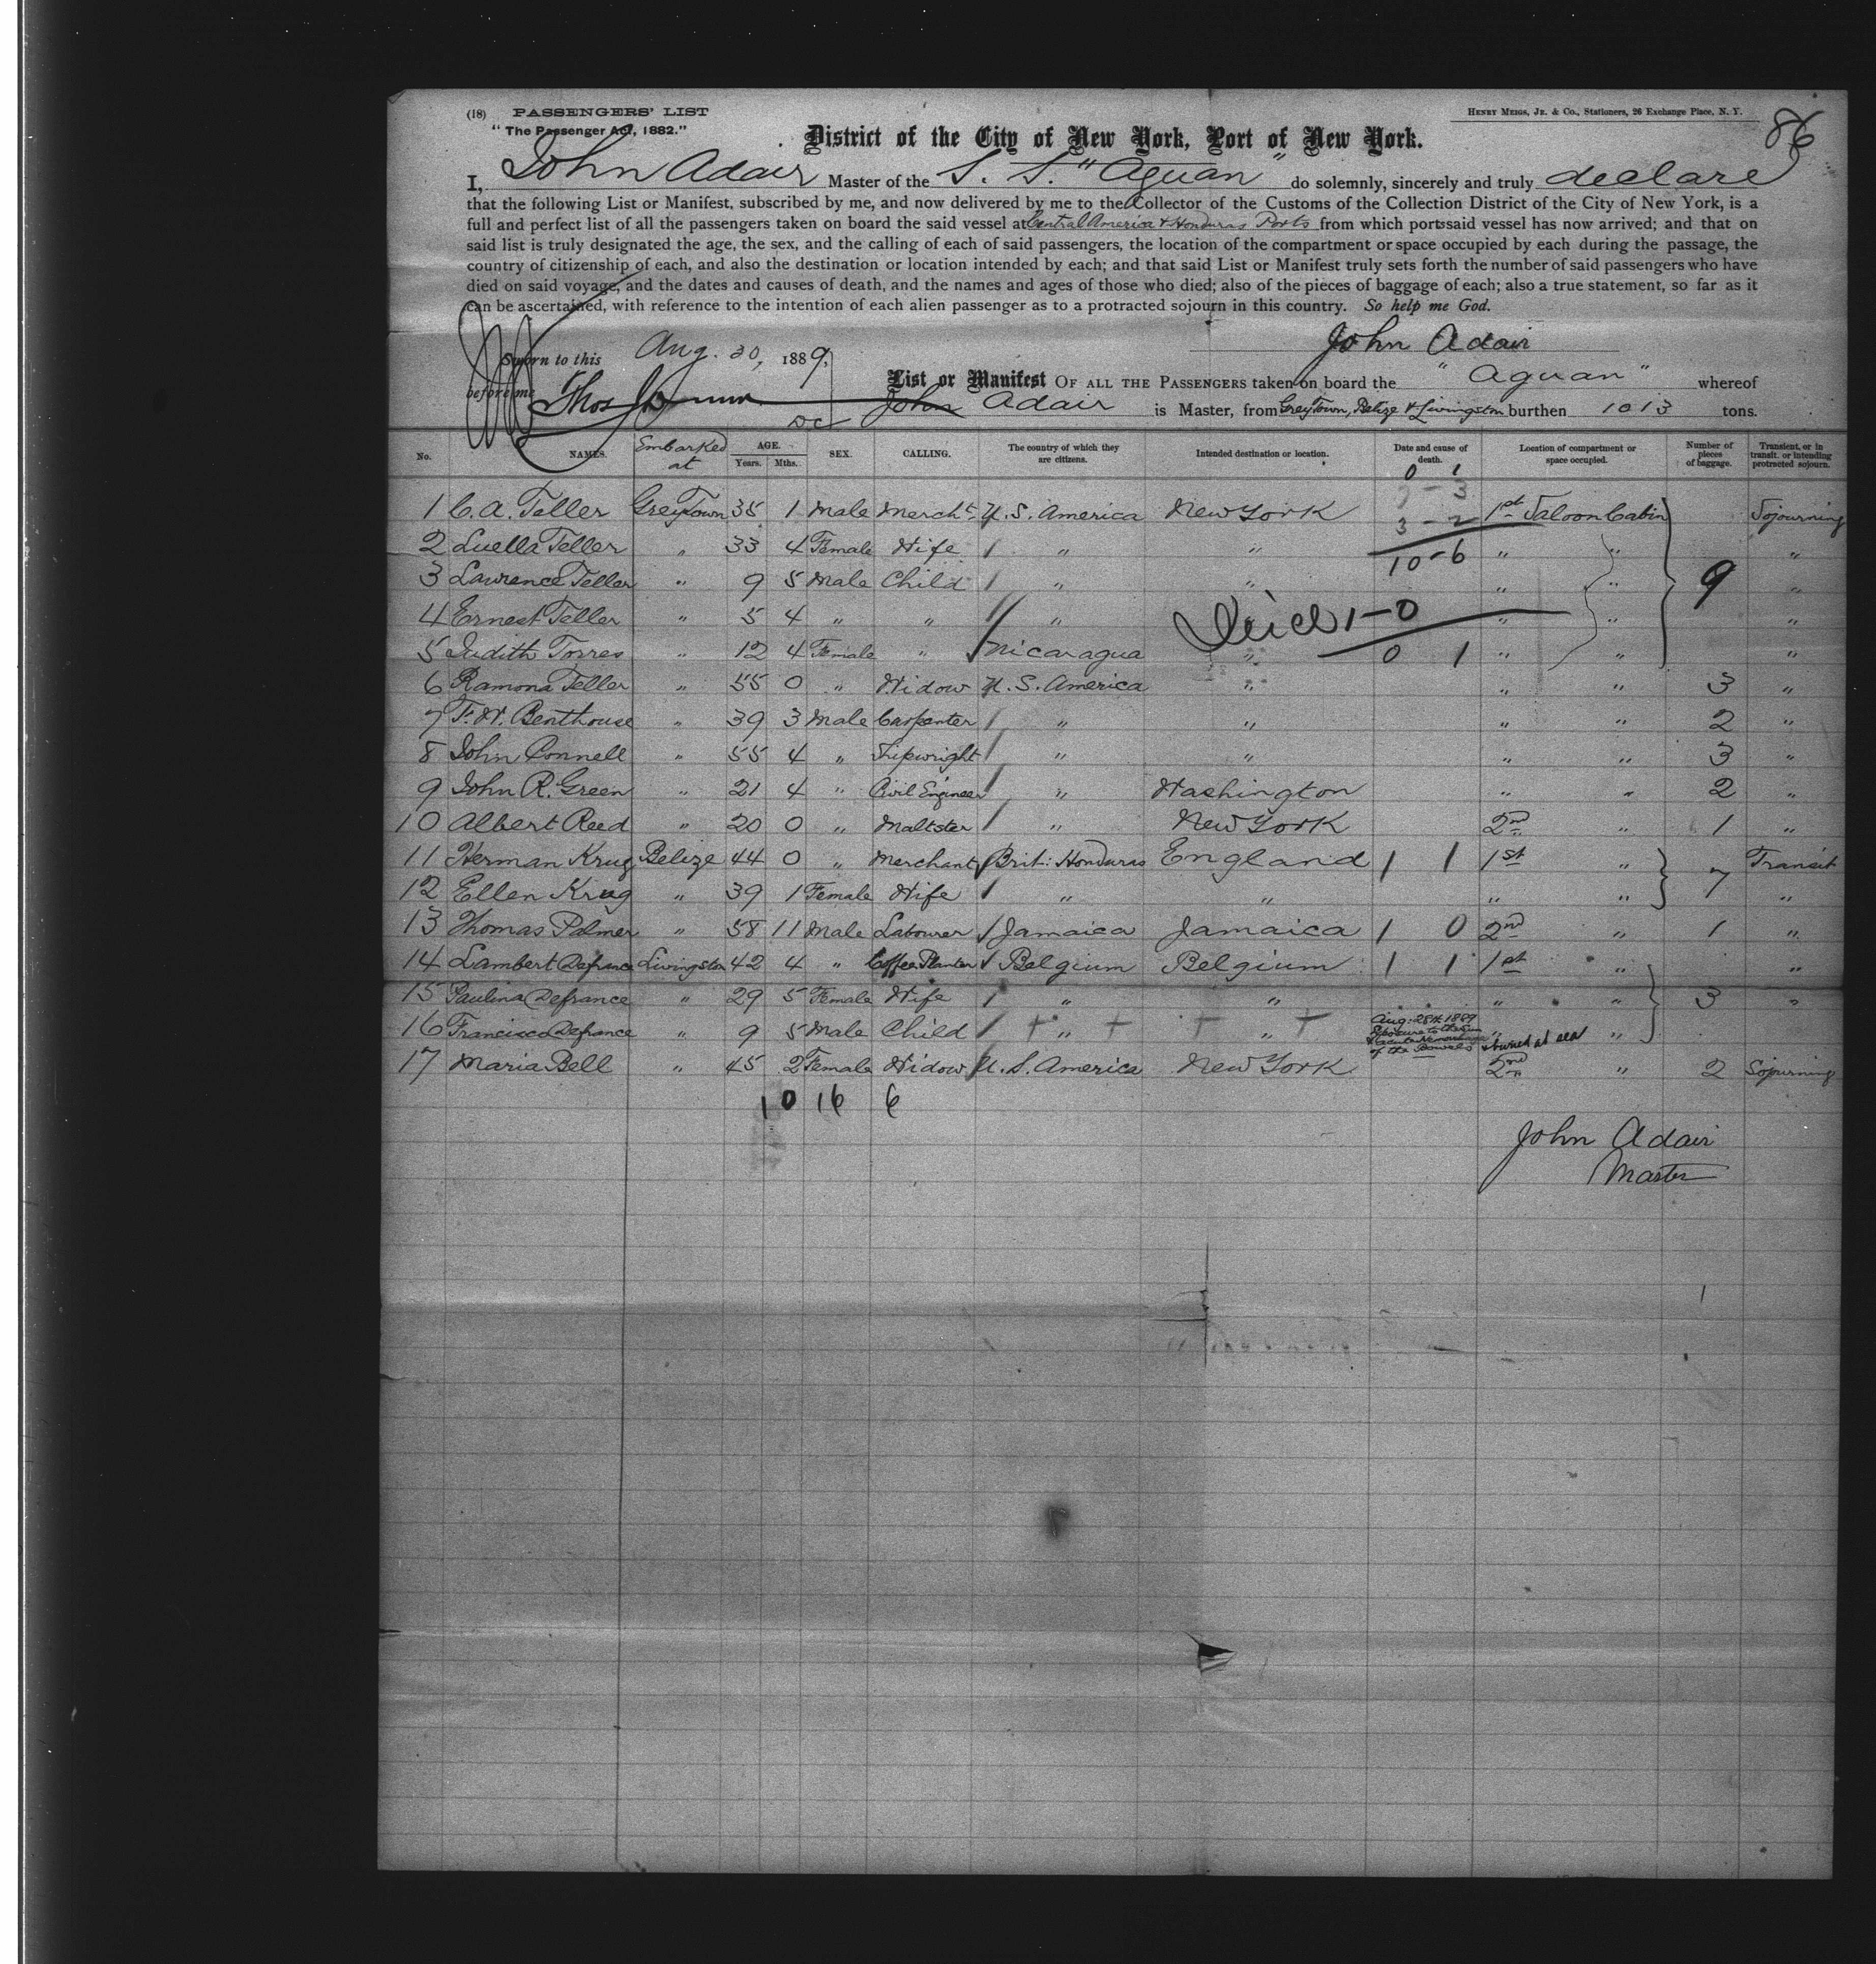 (18) PASSENGERS' LIST
HENRY MEIGS, JR. & CO., Stationers, 26 Exchange Place, N. Y.
86
"The Passenger Act, 1882."
District of the City of New York, Port of New York.
I, John Adair Master of the S. S. "Aguan" do solemnly, sincerely and truly declare
that the following List or Manifest, subscribed by me, and now delivered by me to the Collector of the Customs of the Collection District of the City of New York, is a
full and perfect list of all the passengers taken on board the said vessel at Central America & Honduras Ports from which ports said vessel has now arrived; and that on
said list is truly designated the age, the sex, and the calling of each of said passengers, the location of the compartment or space occupied by each during the passage, the
country of citizenship of each, and also the destination or location intended by each; and that said List or Manifest truly sets forth the number of said passengers who have
died on said voyage, and the dates and causes of death, and the names and ages of those who died; also of the pieces of baggage of each; also a true statement, so far as it
can be ascertained, with reference to the intention of each alien passenger as to a protracted sojourn in this country. So help me God.
Sworn to this Aug. 30, 1889,
John Adair
before me Thos
List or Manifest OF ALL THE PASSENGERS taken on board the "Aguan" whereof
John Adair is Master, from GreyTown, Belize & Livingston burthen 1013 tons.
DC
No. NAMES. Embarked at AGE. Years. Mths. SEX. CALLING. The country of which they are citizens. Intended destination or location. Date and cause of death. Location of compartment or space occupied. Number of pieces of baggage. Transient, or in transit, or intending protracted sojourn.
0 1
3
1 C. A. Teller GreyTown 35 1 Male Mercht. U. S. America New York 3-2 1st Saloon Cabin Sojourning
2 Luella Teller " 33 4 Female Wife " " 10-6 " " "
3 Lawrence Teller " 9 5 Male Child " " " " 9 "
4 Ernest Teller " 5 4 " " " Died 1-0 " " "
5 Judith Torres " 12 4 Female " Nicaragua " 0 1 " " "
6 Ramona Teller " 55 0 " Widow U. S. America " " " 3 "
7 F. W. Benthouse " 39 3 Male Carpenter " " " " 2 "
8 John Connell " 55 4 " Shipwright " " " " 3 "
9 John R. Green " 21 4 " Civil Engineer " Washington " " 2 "
10 Albert Reed " 20 0 " Maltster " New York 2nd " 1 "
11 Herman Krug Belize 44 0 " Merchant Brit: Honduras England 1 1 1st " Transit
12 Ellen Krug " 39 1 Female Wife " " " " 7 "
13 Thomas Palmer " 58 11 Male Labourer Jamaica Jamaica 1 0 2nd " 1 "
14 Lambert Defrance Livingston 42 4 " Coffee Planter Belgium Belgium 1 1 1st " "
15 Paulina Defrance " 29 5 Female Wife " " " " 3 "
16 Francisco Defrance " 9 5 Male Child + " + + " + Aug: 28th 1889 Exposure to the Sun & acute Hemorrhage of the Bowels & buried at sea " "
17 Maria Bell " 45 2 Female Widow U. S. America New York 2nd " 2 Sojourning
10 16 6
John Adair
Master